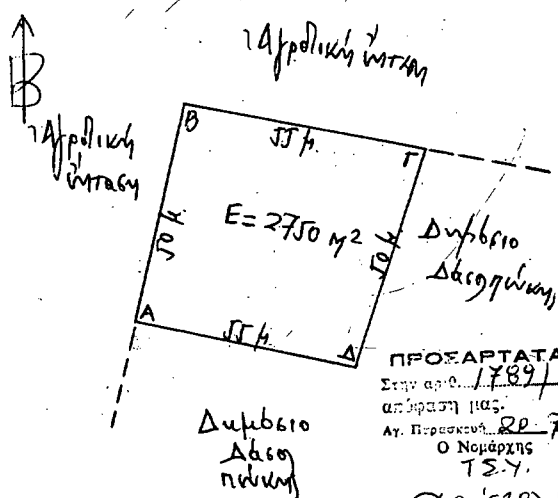 Β
Ἀγροτική ἔκταση
Ἀγροτική
ἔκταση
Β
55 μ.
Γ
50 μ.
Ε= 2750 μ²
50 μ
Δημόσιο
Δάσος πεύκης
Α
55 μ
Δ
Δημόσιο
Δάσος
πεύκης
ΠΡΟΣΑΡΤΑΤΑ
Στην αριθ. 1789/
απόφαση μας.
Αγ. Παρασκευή 20
Ο Νομάρχης
Τ.Σ.Υ.